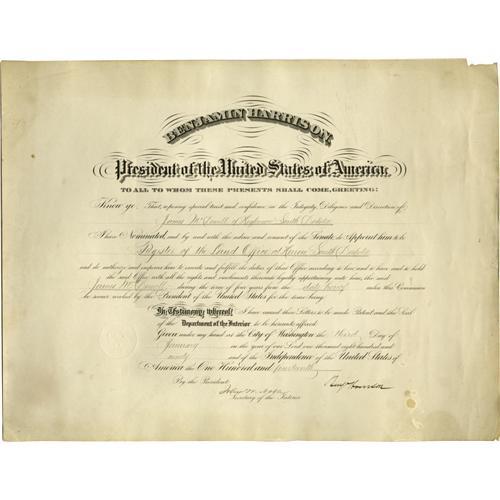 BENJAMIN HARRISON
President of the United States of America,
TO ALL TO WHOM THESE PRESENTS SHALL COME, GREETING:
Know ye, That, reposing special trust and confidence in the Integrity, Diligence and Discretion of
James of Highmore South Dakota
I have Nominated, and by and with the advice and consent of the Senate, do Appoint him to be
Register of the Land Office at Huron South Dakota
and do authorize and empower him to execute and fulfill the duties of that Office according to law; and to have and to hold
the said Office with all the rights and emoluments thereunto legally appertaining unto him, the said
James during the term of four years from the date hereof unless this Commission
be sooner revoked by the President of the United States for the time being.
In Testimony Whereof, I have caused these Letters to be made Patent and the Seal
of the Department of the Interior to be hereunto affixed.
Given under my hand at the City of Washington the Third Day of
January in the year of our Lord one thousand eight hundred and
ninety and of the Independence of the United States of
America the One Hundred and fourteenth
By the President:
Benj Harrison
John W. Noble
Secretary of the Interior